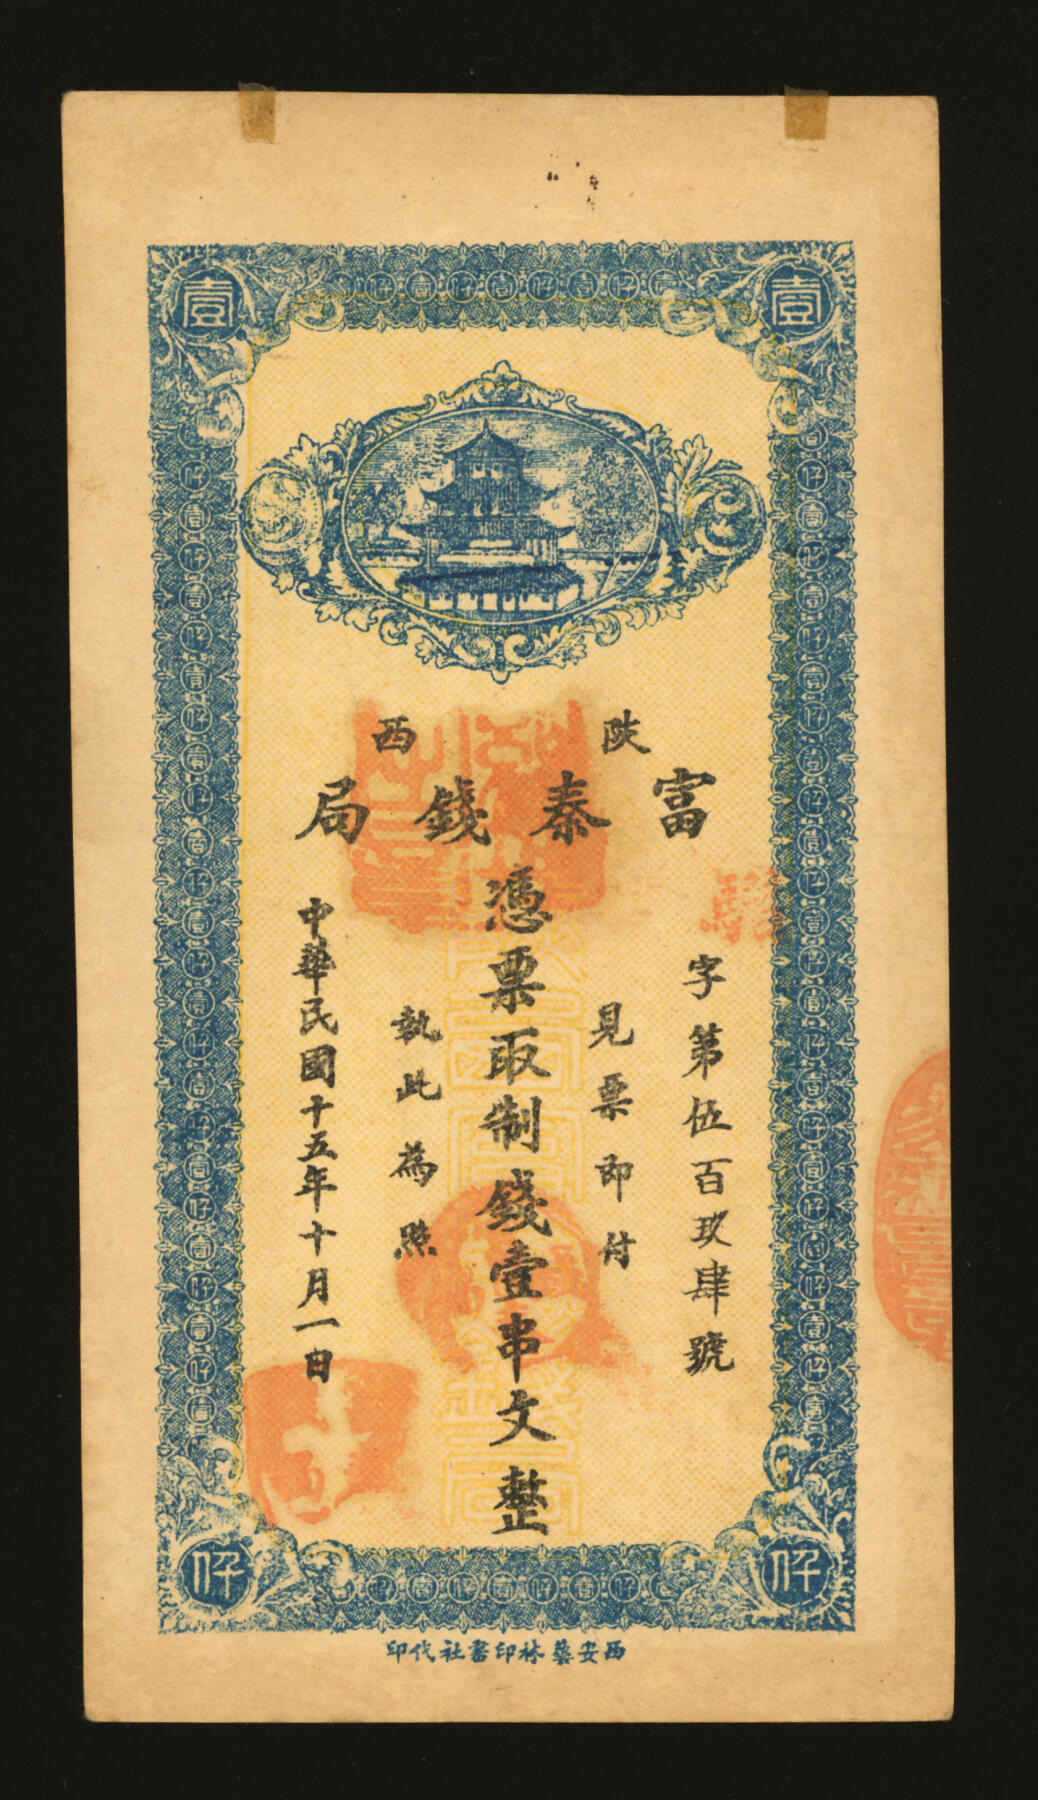 壹
壹
陝西
富秦錢局
字第伍百玖肆號
見票即付
憑票取制錢壹串文整
執此為照
中華民國十五年十月一日
仟
仟
西安藝林印書社代印